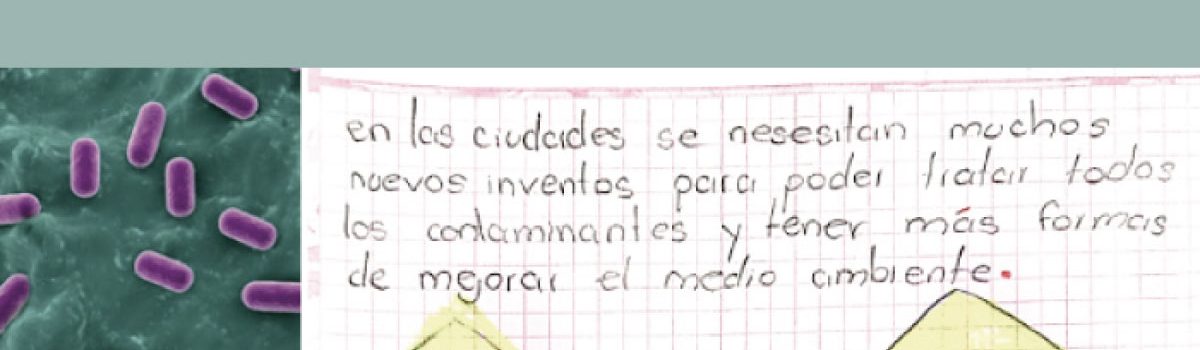 en las ciudades se nesesitan muchos
nuevos inventos para poder tratar todos
los contaminantes y tener más formas
de mejorar el medio ambiente.